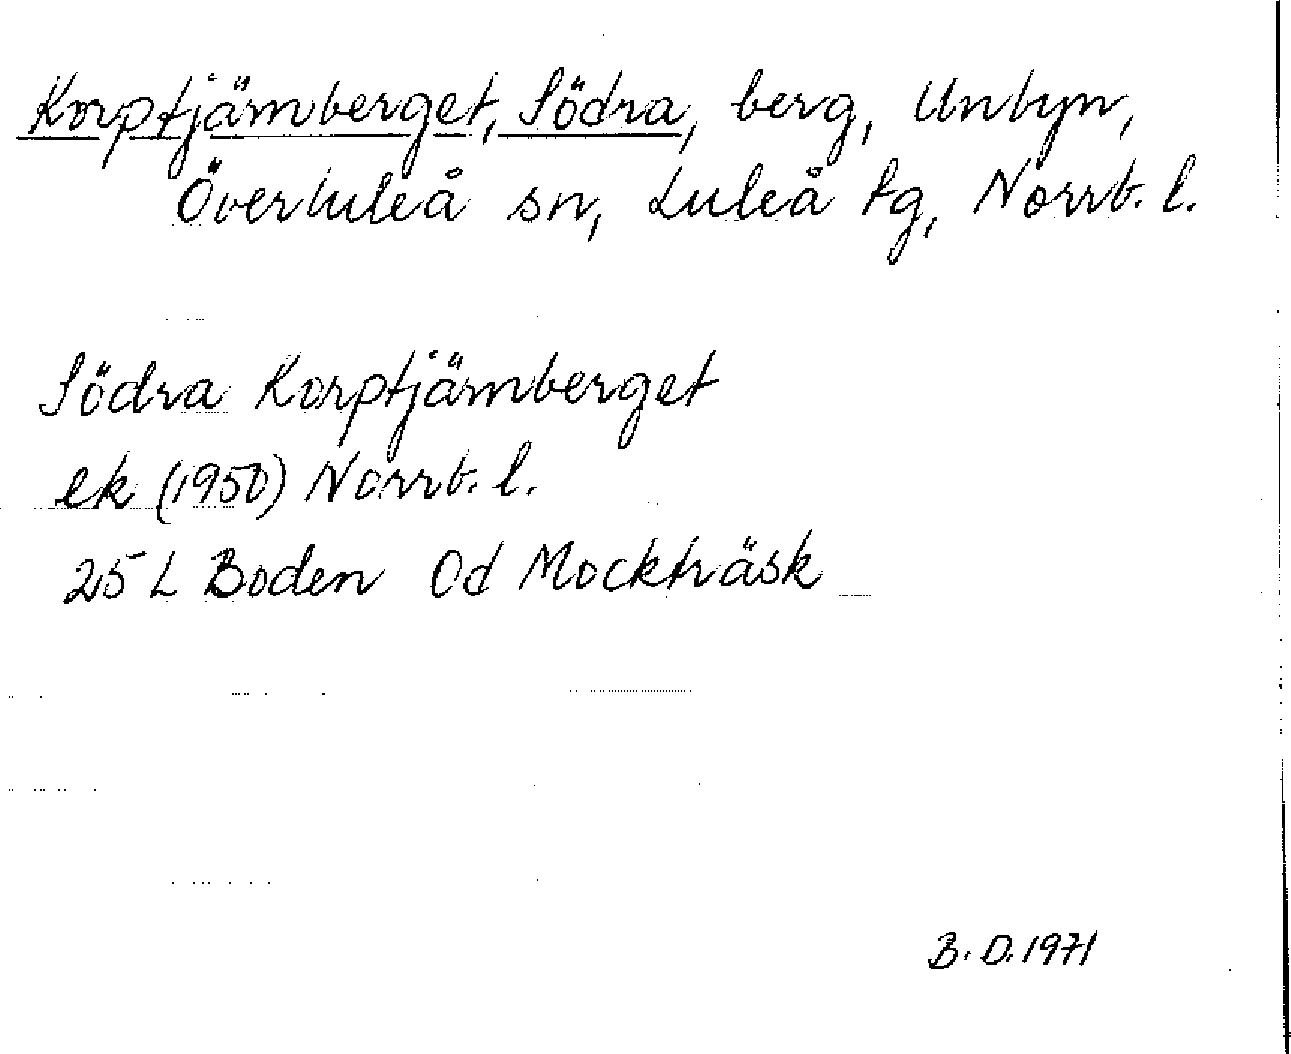 Korptjärnberget, Södra, berg, Unbyn,
Överluleå sn, Luleå tg, Norrb. l.
Södra Korptjärnberget
ek (1950) Norrb. l.
25 L Boden Od Mockträsk
B.D. 1971